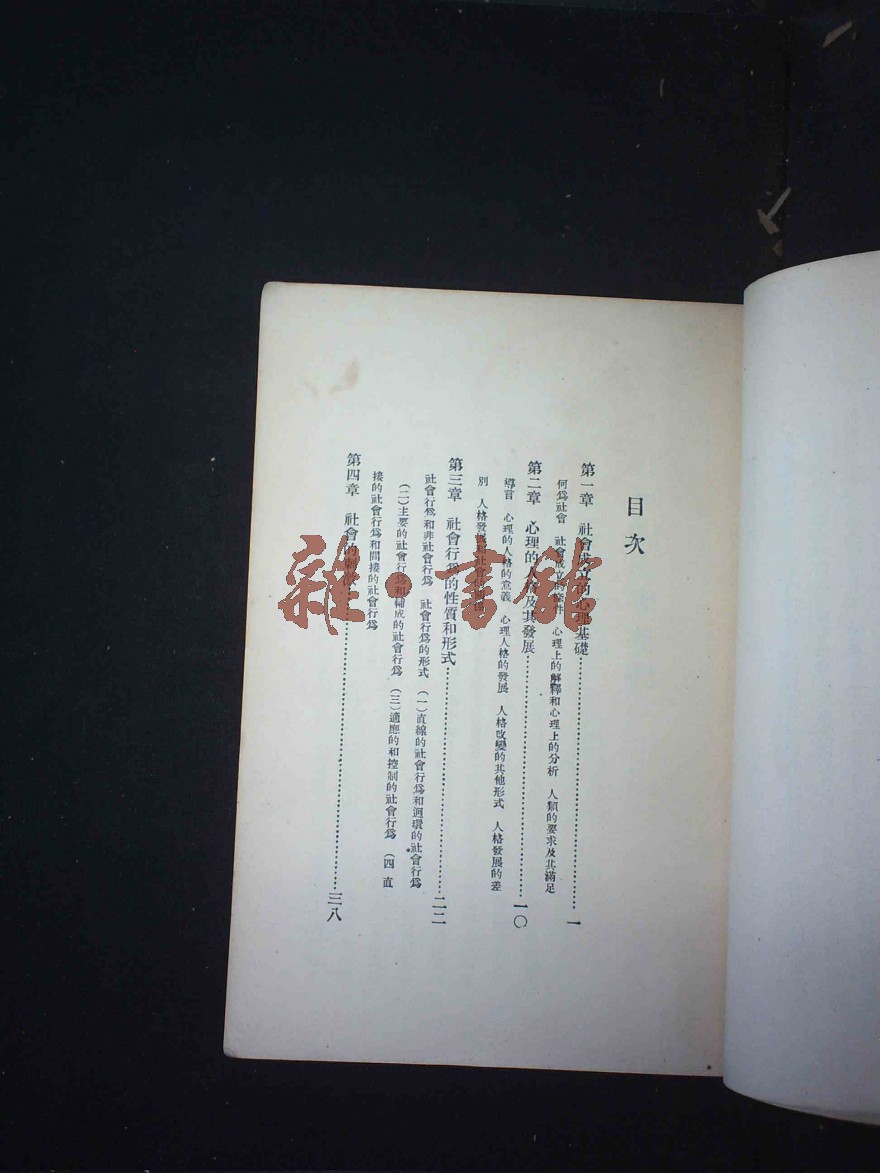 目次
第一章 社會成立的心理基礎……一
何爲社會 社會成立的條件 心理上的解釋和心理上的分析 人類的要求及其滿足
第二章 心理的人格及其發展……一〇
導言 心理的人格的意義 心理人格的發展 人格改變的其他形式 人格發展的差
別 人格發展和社會的關係
第三章 社會行爲的性質和形式……二二
社會行爲和非社會行爲 社會行爲的形式 (一)直線的社會行爲和迴環的社會行爲
(二)主要的社會行爲和輔成的社會行爲 (三)適應的和控制的社會行爲 (四 直
接的社會行爲和間接的社會行爲
第四章 社會的刺……三八
雜·書館